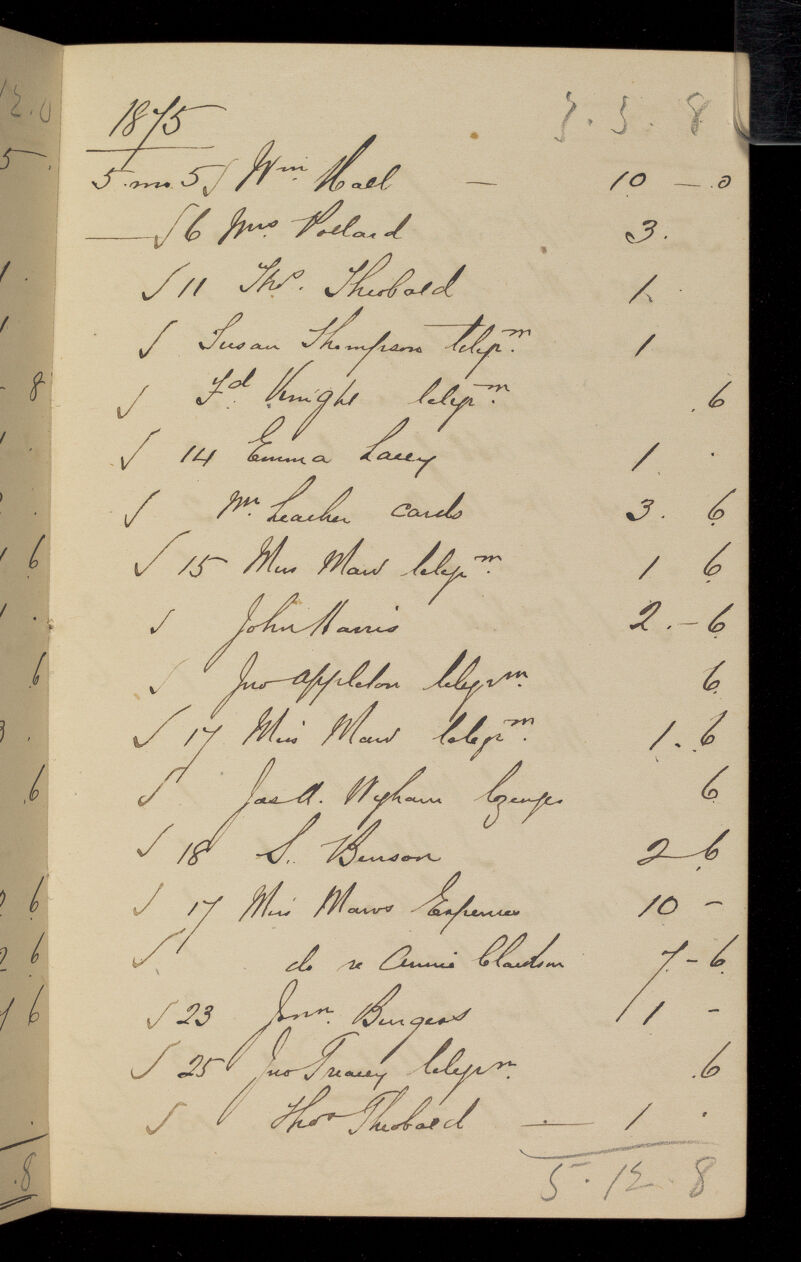 1875 3.3.8
5 mo 5 Wm Hall — 10 — 0
— 6 Mrs Pollard 3.
11 Thos. Theobald 1.
Susan Thompson telegm. 1
Fd. Knight telegm. .6
14 Emma Lacey 1 .
Mr Leacher cards 3. 6
15 Miss Maw telegm. 1 6
John Harris 2.-6
Jno Appleton telegrm. 6
17 Miss Maw telegm. 1.6
Jas A. Wyham lozenges 6
18 S. Benson 2 6
17 Miss Maws Expenses 10 -
do re Annie Clarkson 7-6
23 Jonn. Burgess 1 -
25 Jno Treacey telegrm. .6
Thos Theobald — 1 .
5.12.8